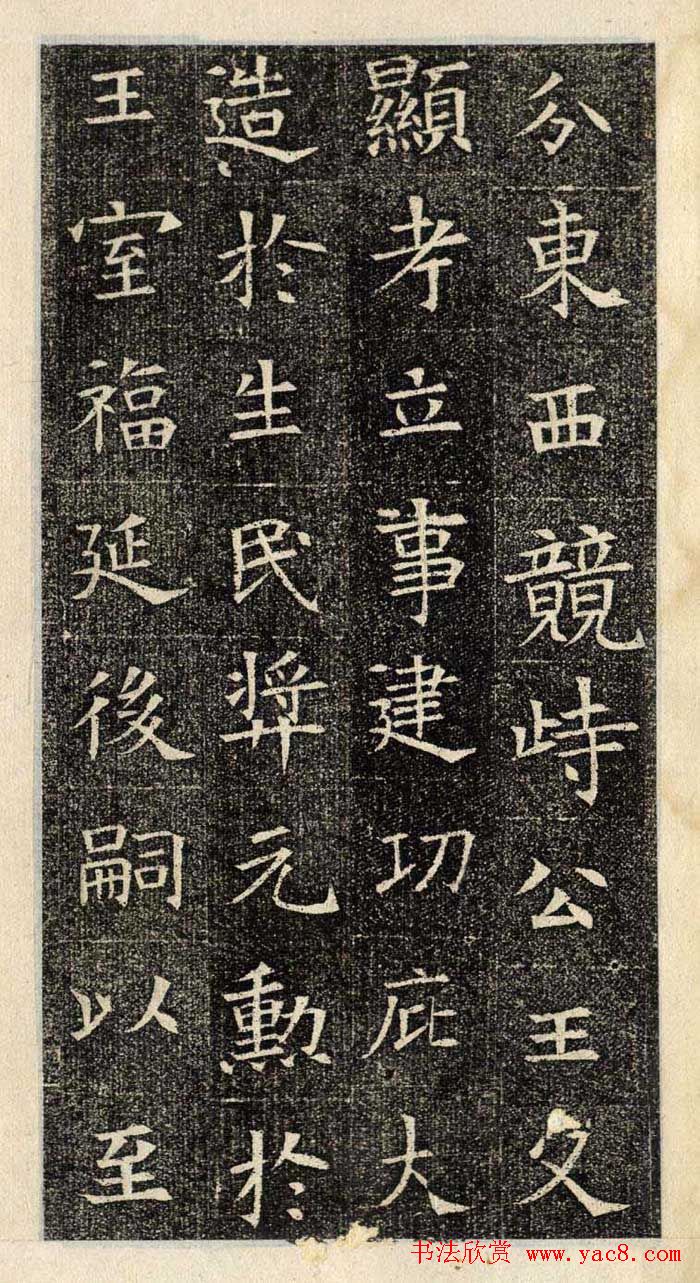 分東西競峙公王文
顯考立事建功庇大
造於生民奬元勳於
王室福延後嗣以至
书法欣赏 www.yac8.com